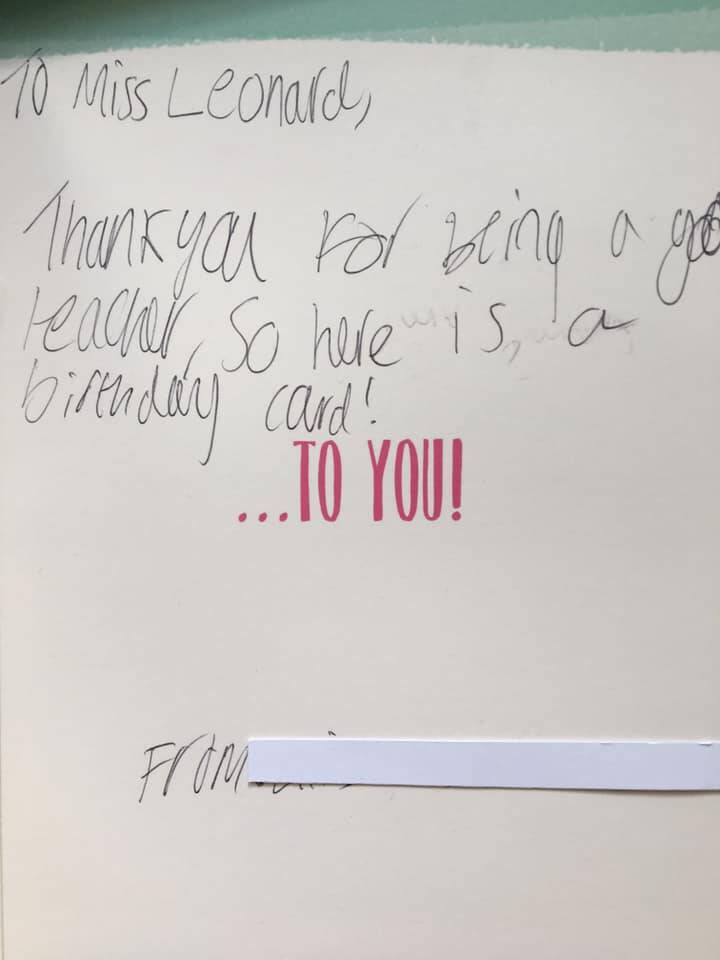 To Miss Leonard,
Thankyou for being a goo
teacher, So here is, a
birthday card!
...TO YOU!
From